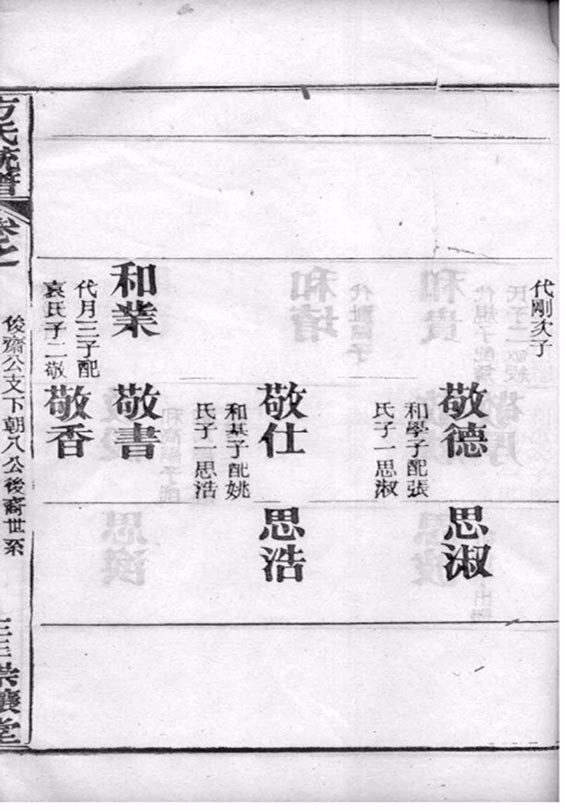 代剛次子
敬德
和學子配張
氏子一思淑
思淑
敬仕
和基子配姚
氏子一思浩
思浩
和業
代月三子配
袁氏子二敬
敬書
敬香
方氏統譜
卷之一
俊齋公支下朝八公後裔世系